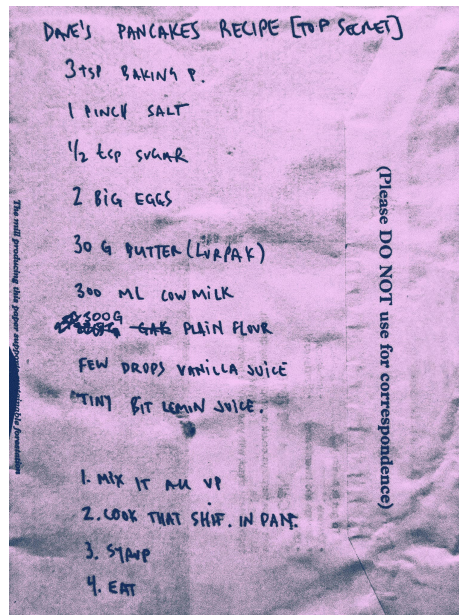 DAVE'S PANCAKES RECIPE [TOP SECRET]
3 tsp BAKING P.
1 PINCH SALT
1/2 tsp SUGAR
2 BIG EGGS
30 G BUTTER (LURPAK)
300 ML COW MILK
300G PLAIN FLOUR
FEW DROPS VANILLA JUICE
TINY BIT LEMIN JUICE.
1. MIX IT ALL UP
2. COOK THAT SHIT. IN PAN.
3. SYRUP
4. EAT
(Please DO NOT use for correspondence)
The mill producing this paper supports sustainable forestation